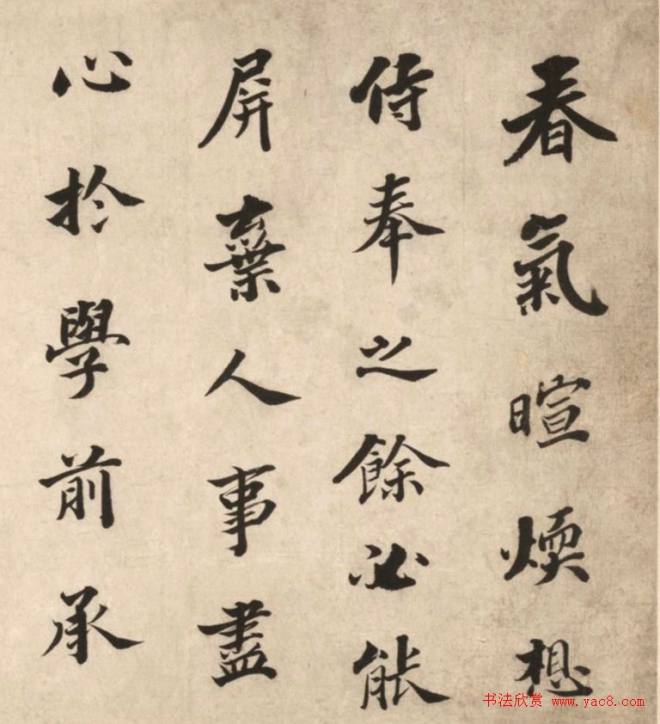 春氣暄煗想
侍奉之餘必能
屏棄人事盡
心扵學前承
书法欣赏 www.yac8.com